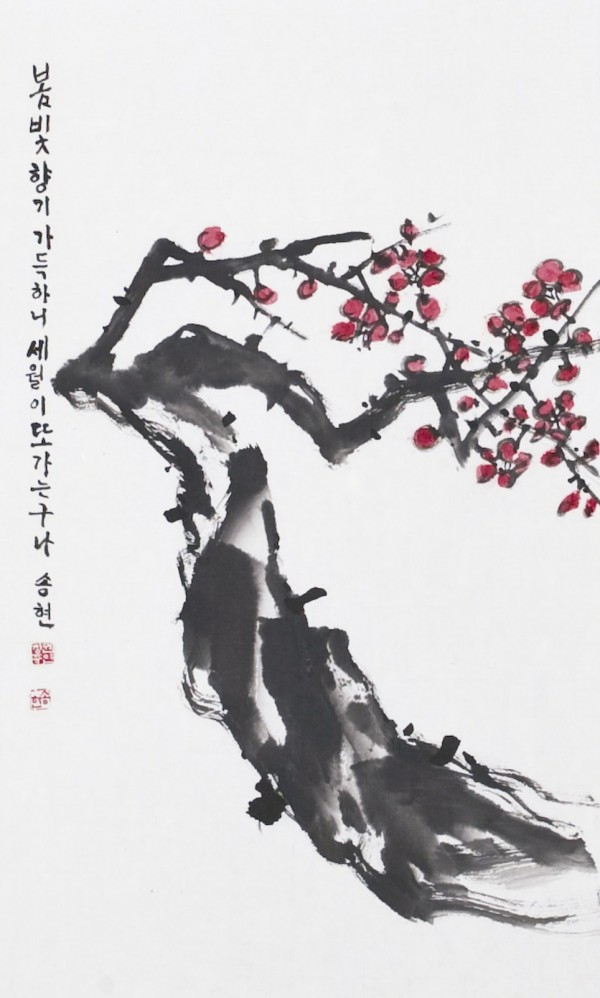 봄빛 향기 가득하니 세월이 또 가는구나 송현